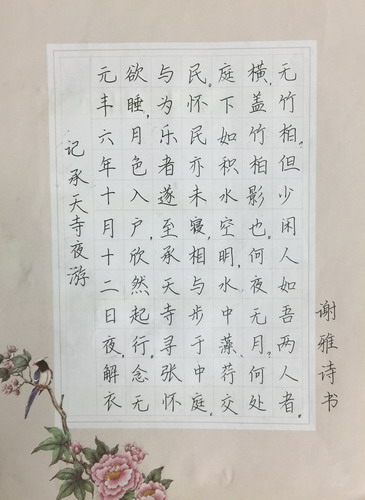 记承天寺夜游
元丰六年十月十二日夜,解衣
欲睡,月色入户,欣然起行。念无
与为乐者遂至承天寺寻张怀
民。怀民亦未寝,相与步于中庭。
庭下如积水空明,水中藻、荇交
横,盖竹柏影也。何夜无月?何处
无竹柏?但少闲人如吾两人者。
谢雅诗书